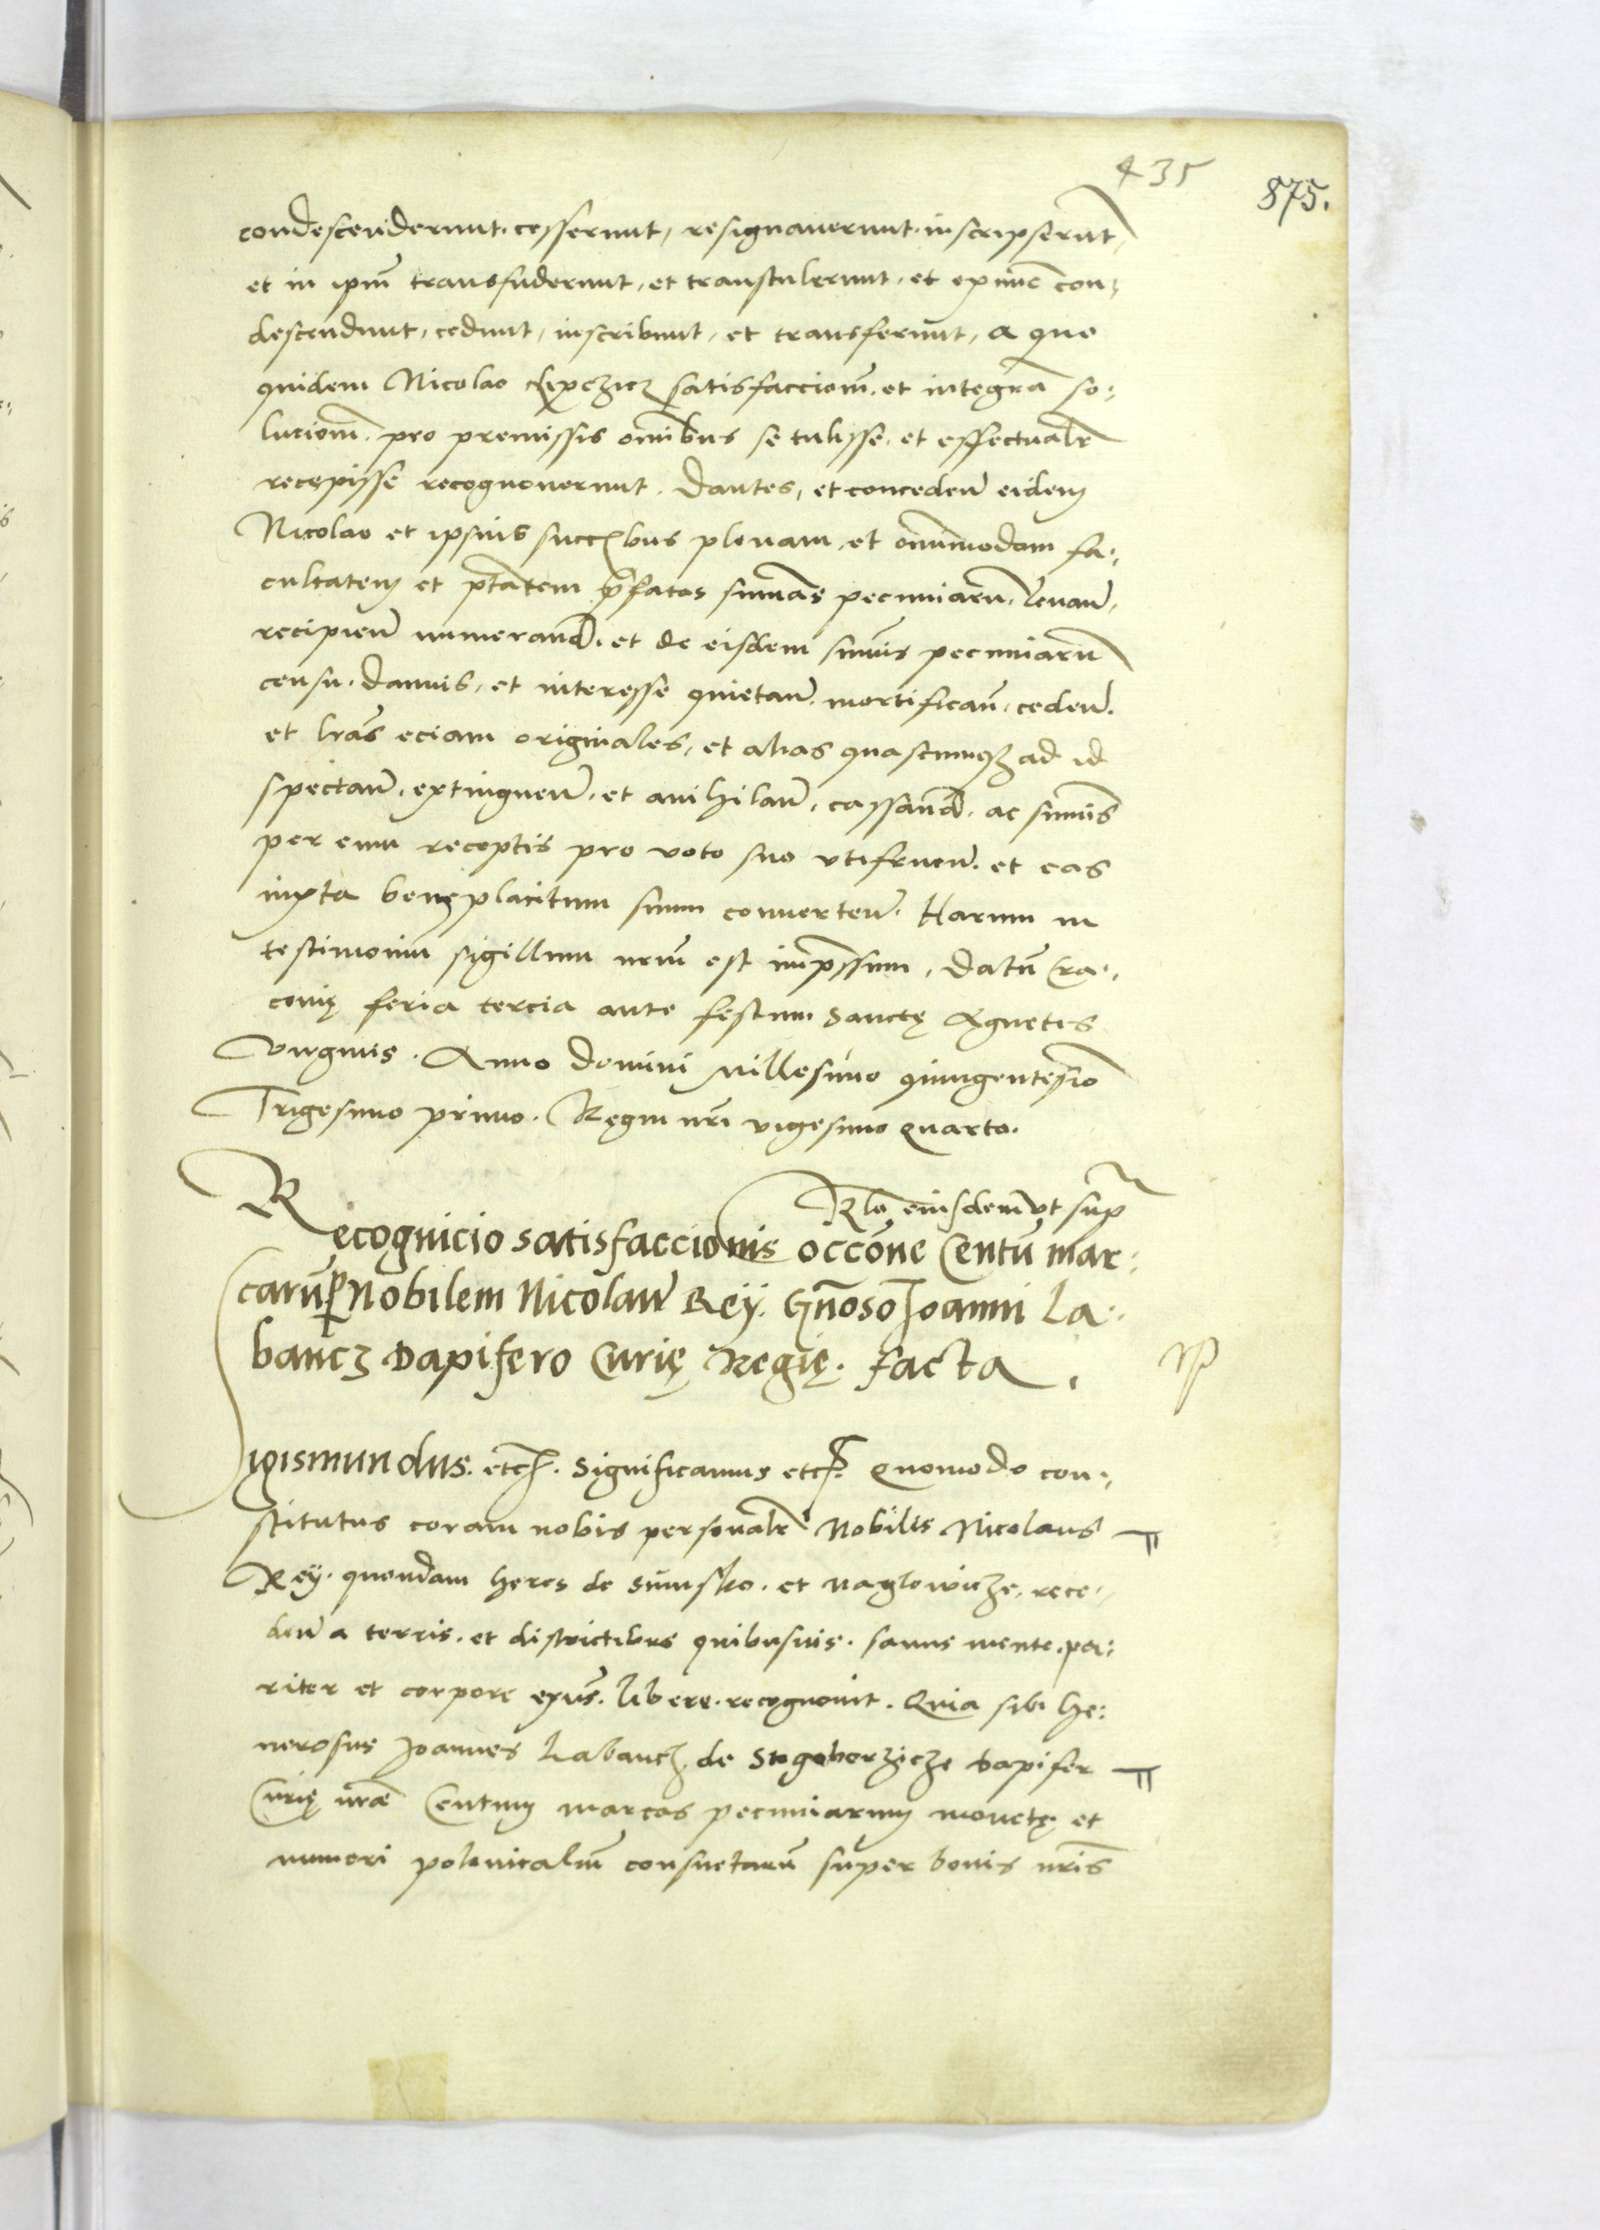 435
875.
condescenderunt. cesserunt, resignauerunt. inscripserūt,
et in ipm̄ transfuderunt, et transtulerunt, et exnūc con,
descendunt, cedunt, inscribunt, et transferunt, a quo
quidem Nicolao satisfacciom̄. et integrā so:
luciom̄. pro premissis om̄ibus se tulisse. et effectualr̄
recepisse recognouerunt. Dantes, et conceden̄ eidem
Nicolao et ipsius succ̄ibus plenam, et om̄nimodam fa:
cultatem et ptātem p̄fatas summās pecuniarū, leuan̄,
recipien̄ numeran̄d. et de eisdem sum̄is pecuniarū
censu. damnis, et interesse quietan̄. mortifican̄, ceden̄.
et lrās eciam originales, et alias quascunq3 ad id
spectan̄, extinguen̄. et anihilan̄, cassan̄d. ac sum̄is
per eum receptis pro voto suo vtifruen̄. et eas
iuxta beneplacitum suum conuerten̄. Harum in
testimoniū sigillum nr̄m est imp̄ssum, Datū Cra:
couię feria tercia ante festum Sanctę Agnetis
Virginis. Anno domini Millesimo quingentesīo
Trigesimo primo. Regni nr̄i vigesimo quarto.
Rlō eiusdem vt sup̄
Recognicio satisfaccionis occōne Centū mar:
carū p̱ Nobilem Nicolaum̄ Reÿ. Gn̄oso Joanni La:
bancz Dapifero Curię Regię. facta.
Np
Sigismundus. etc̄. Significamus etc̄. Quomodo con:
stitutus coram nobis personalr̄ Nobilis Nicolaus
Reÿ. quondam heres de Sumsko. et Naglowicze, rece,
den̄ a terris. et districtibus quibusuis. sanus mente. pa:
riter et corpore exn̄s. libere. recognouit. Quia sibi Ge:
nerosus Joannes Labancz de Stogoborzicze dapifer
Curię nr̄æ Centum marcas pecuniarum monetę et
numeri polonicaliū consuetarū super bonis nr̄is